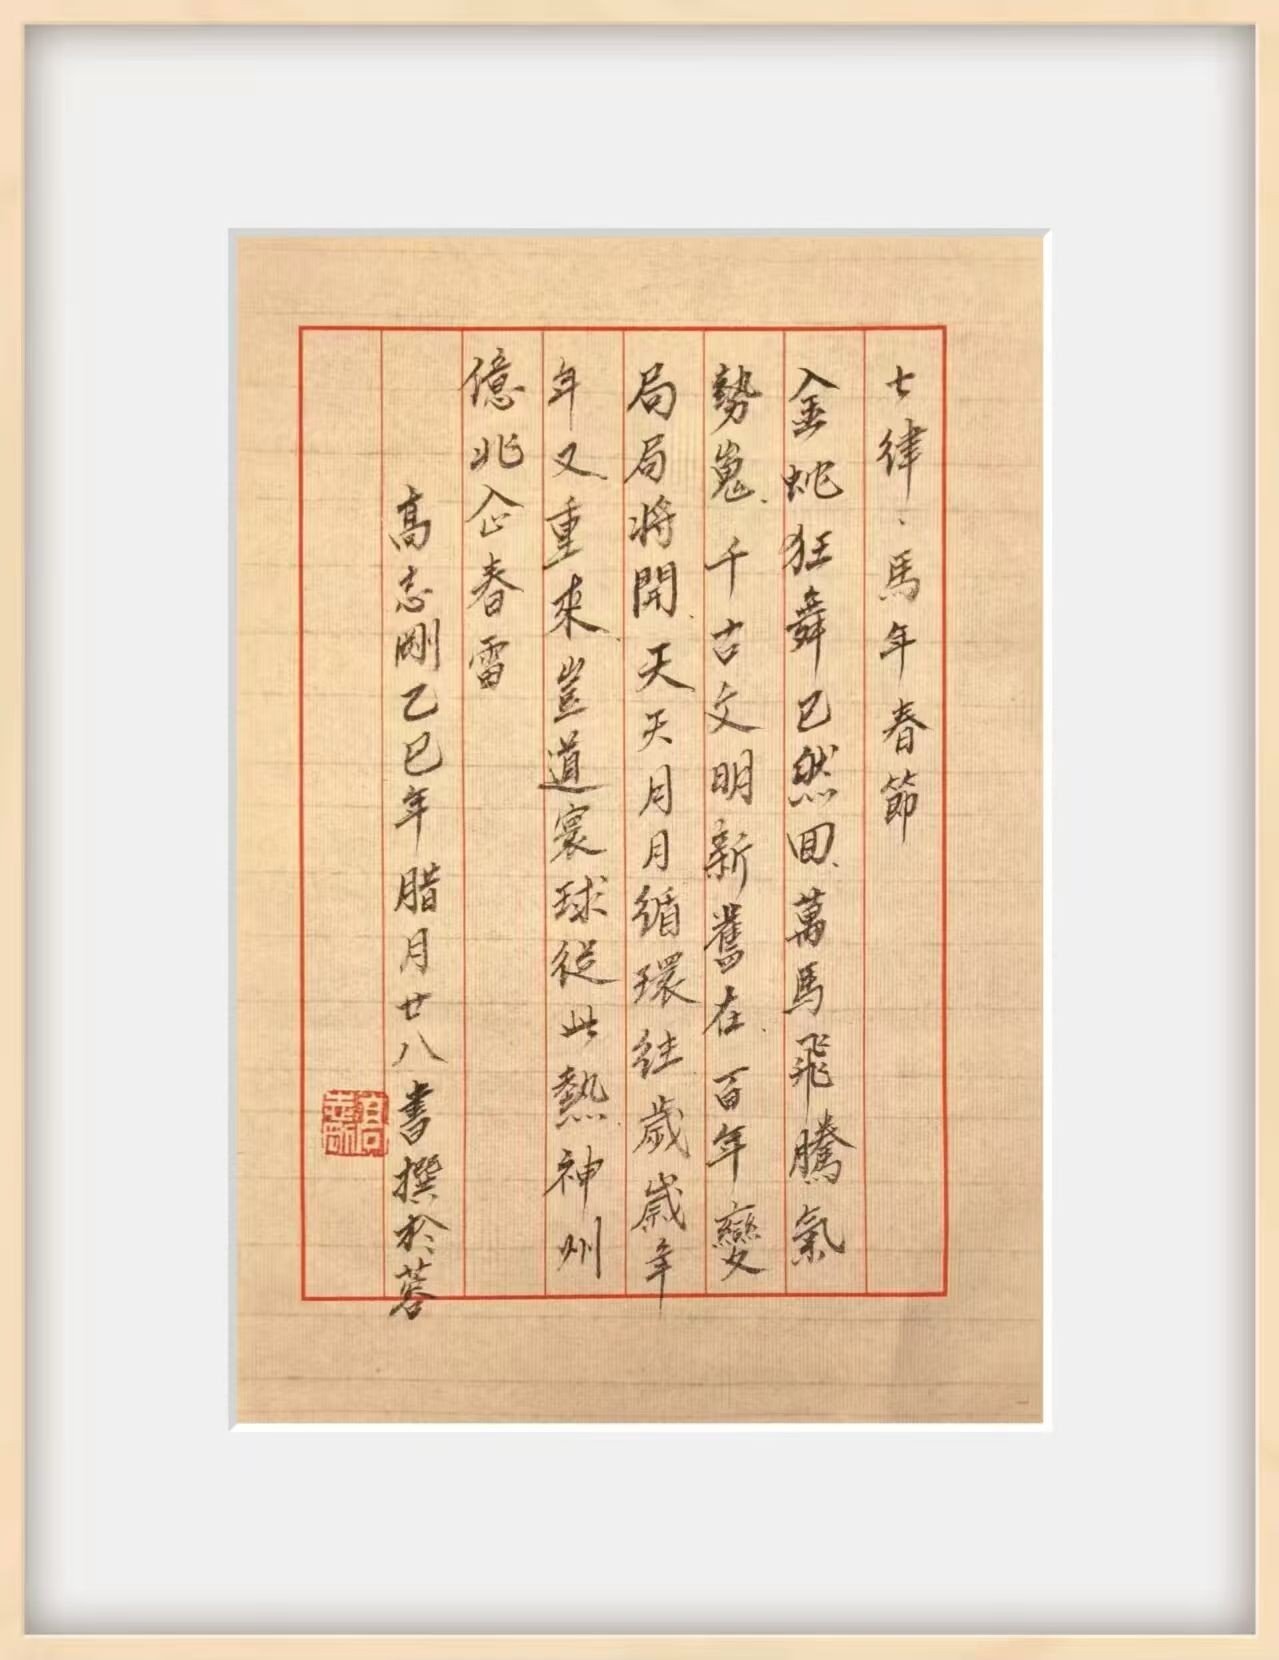 七律·馬年春節
金蛇狂舞已然回萬馬飛騰氣
勢嵬千古文明新舊在百年變
局局將開天天月月循環往歲歲年
年又重來豈道寰球從此熱神州
億兆企春雷
高志剛乙巳年腊月廿八書撰於蓉
高志剛